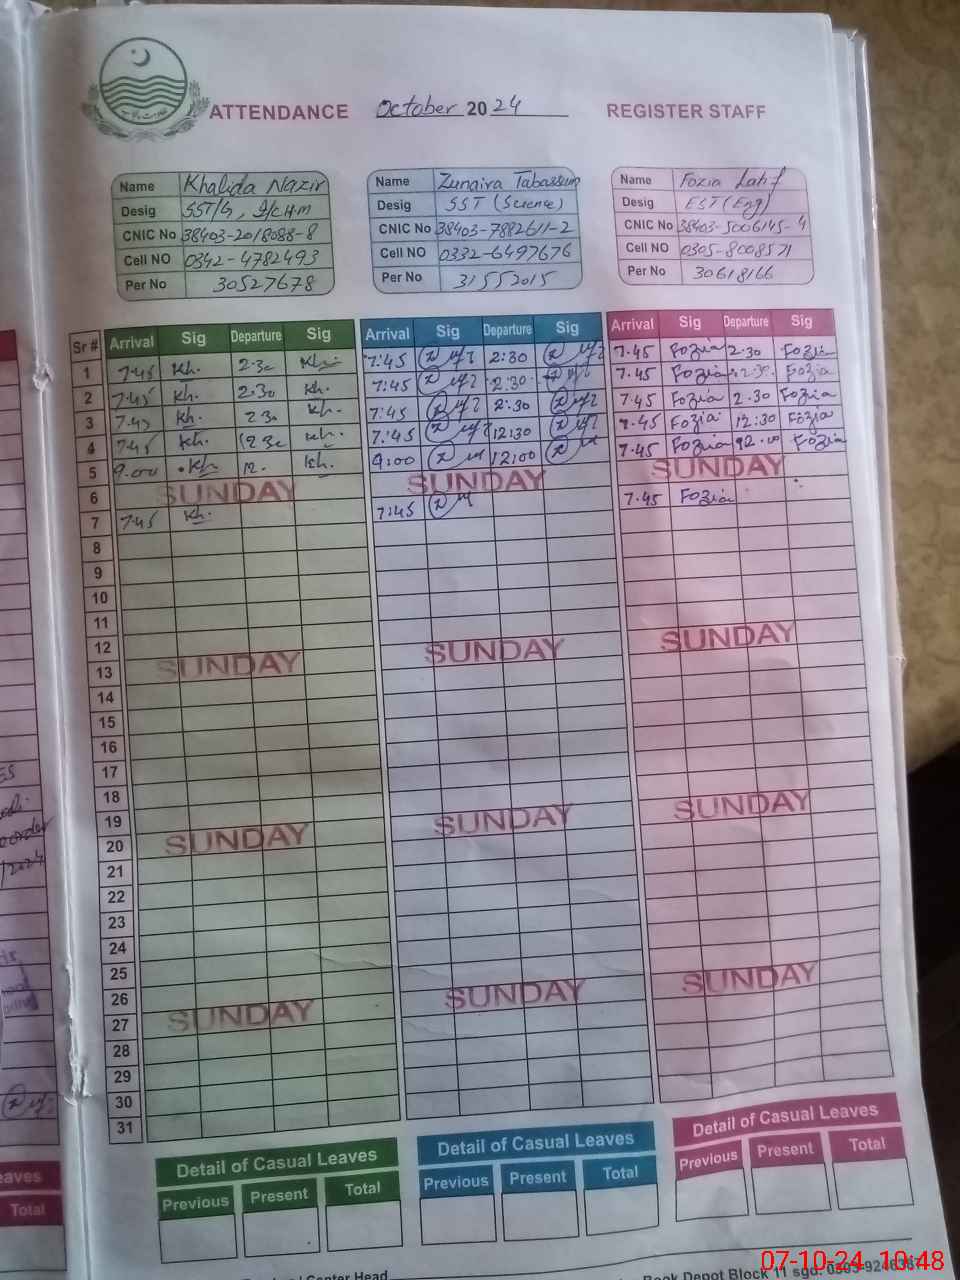 ATTENDANCE October 2024 REGISTER STAFF
Name Khalida Nazir
Desig SST/G, I/C H.M
CNIC No 38403-2018088-8
Cell NO 0342-4782493
Per No 30527678
Name Zunaira Tabassum
Desig SST (Science)
CNIC No 38403-7882611-2
Cell NO 0332-6497676
Per No 31552015
Name Fozia Latif
Desig EST (Eng)
CNIC No 38403-5006145-4
Cell NO 0305-8008571
Per No 30618166
Sr # Arrival Sig Departure Sig Arrival Sig Departure Sig Arrival Sig Departure Sig
1 7.45 Kh. 2.30 Kh. 7:45 2:30 7.45 Fozia 2.30 Fozia
2 7.45 Kh. 2.30 Kh. 7:45 2:30 7.45 Fozia 2.30 Fozia
3 7.45 Kh. 2.30 Kh. 7:45 2:30 7.45 Fozia 2.30 Fozia
4 7.45 Kh. 12.30 Kh. 7:45 12:30 7.45 Fozia 12:30 Fozia
5 9.00 Kh. 12. Kh. 9:00 12:00 7.45 Fozia 12.00 Fozia
6 SUNDAY SUNDAY SUNDAY
7 7.45 Kh. 7:45 7.45 Fozia
8
9
10
11
12
13 SUNDAY SUNDAY SUNDAY
14
15
16
17
18
19
20 SUNDAY SUNDAY SUNDAY
21
22
23
24
25
26
27 SUNDAY SUNDAY SUNDAY
28
29
30
31
Detail of Casual Leaves Detail of Casual Leaves Detail of Casual Leaves
Previous Present Total Previous Present Total Previous Present Total
Center Head
Book Depot Block 11 sgd.
07-10-24 10:48
order
2024
Total